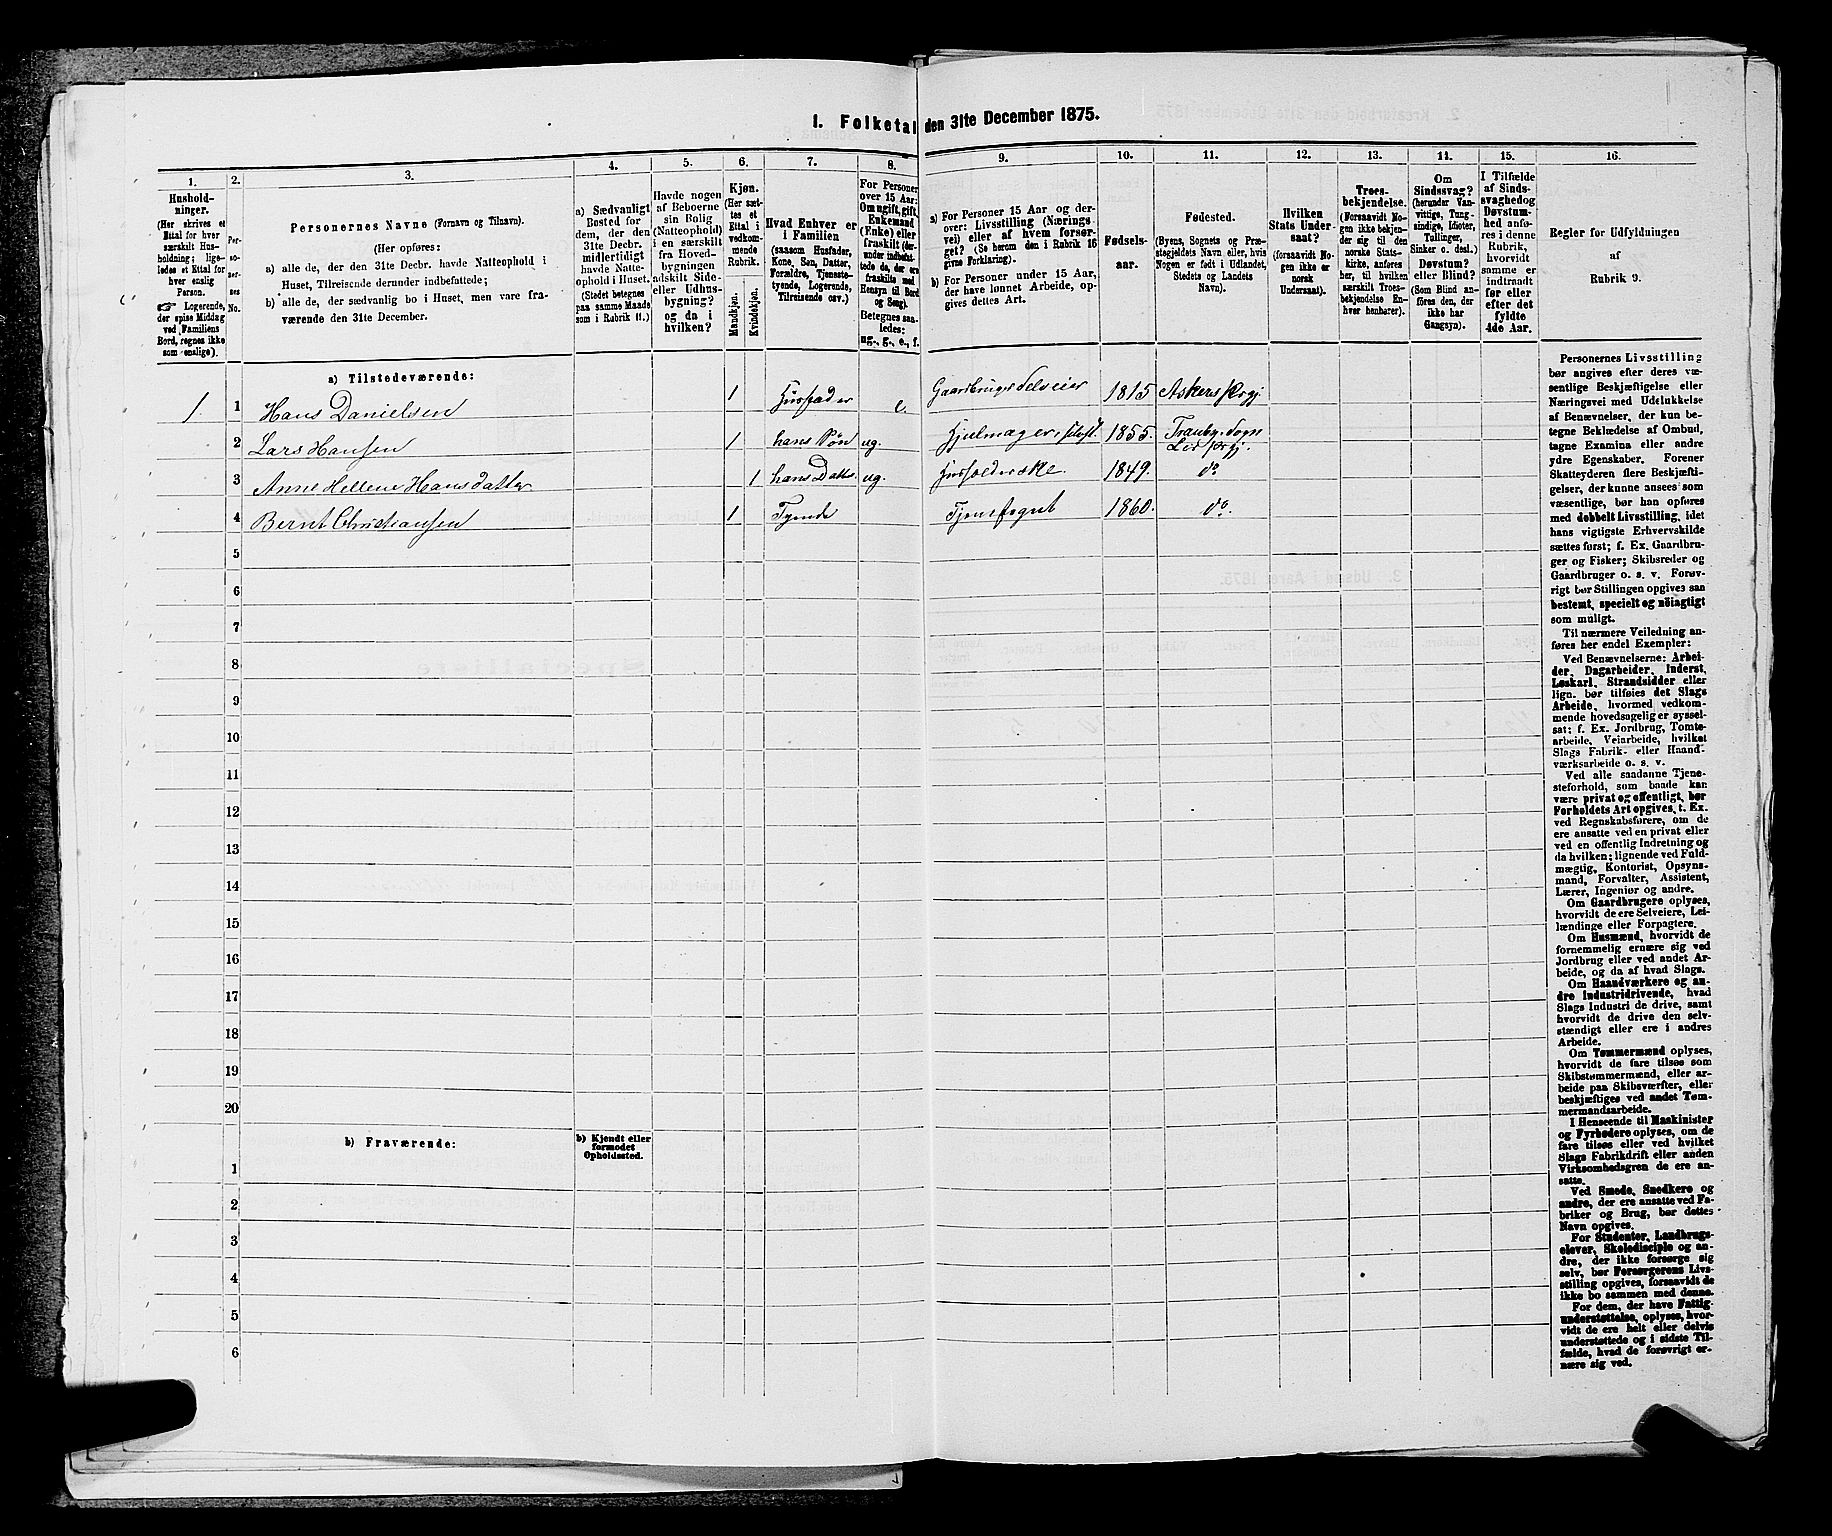 I. Folketal den 31te December 1875.
1. 2. 3. 4. 5. 6. 7. 8. 9. 10. 11. 12. 13. 14. 15. 16.
Hushold-
ninger.
(Her skrives et
Ettal for hver
særskilt Hus-
holdning; lige-
ledes et Ettal for
hver enslig
Person.
☞ Logerende,
der spise Middag
ved Familiens
Bord, regnes ikke
som enslige).
Per-
so-
ner-
nes
No.
Personernes Navne (Fornavn og Tilnavn).
(Her opføres:
a) alle de, der den 31te Decbr. havde Natteophold i
Huset, Tilreisende derunder indbefattede;
b) alle de, der sædvanlig bo i Huset, men vare fra-
værende den 31te December.
a) Sædvanligt
Bosted for
dem, der den
31te Decbr.
midlertidigt
havde Natte-
ophold i Huset.
(Stedet betegnes
paa samme Maade
som i Rubrik 11.)
Havde nogen
af Beboerne
sin Bolig
(Natteophold)
i en særskilt
fra Hoved-
bygningen
adskilt Side-
eller Udhus-
bygning?
og da i
hvilken?
Kjøn.
(Her sæt-
tes et
Ettal i
vedkom-
mende
Rubrik.
Mandkjøn.
Kvindekjøn.
Hvad Enhver er
i Familien
(saasom Husfader,
Kone, Søn, Datter,
Forældre, Tjeneste-
tyende, Logerende,
Tilreisende osv.)
For Personer
over 15 Aar:
Om ugift, gift,
Enkemand
(Enke) eller
fraskilt (der-
under indbefat-
tede de, der ere
fraskilte med
Hensyn til Bord
og Seng).
Betegnes saa-
ledes:
ug., g., e., f.
a) For Personer 15 Aar og der-
over: Livsstilling (Nærings-
vei) eller af hvem forsør-
get? (Se herom den i Rubrik 16
givne Forklaring).
b) For Personer under 15 Aar,
der have lønnet Arbeide, op-
gives dettes Art.
Fødsels-
aar.
Fødested.
(Byens, Sognets og Præ-
stegjeldets Navn eller, hvis
Nogen er født i Udlandet,
Stedets og Landets
Navn).
Hvilken
Stats Under-
saat?
(forsaavidt No-
gen ikke er
norsk
Undersaat).
Troes-
bekjendelse.
(Forsaavidt No-
gen ikke bekjen-
der sig til den
norske Stats-
kirke, anføres
her, til hvilken
særskilt Troes-
bekjendelse En-
hver henhører).
Om
Sindssvag?
(herunder Van-
vittige, Tung-
sindige, Idioter,
Tullinger,
Sinker o. desl.)
Døvstum?
eller Blind?
(Som Blind an-
føres den, der
ikke har
Gangsyn).
I Tilfælde
af Sinds-
svaghed og
Døvstum-
hed anfø-
res i denne
Rubrik,
hvorvidt
samme er
indtraadt
før eller
efter det
fyldte
4de Aar.
Regler for Udfyldningen
af
Rubrik 9.
a) Tilstedeværende:
1. 1 Hans Danielsen 1 Husfader e. Gaardbruger Selveier 1815 Askers Prgj.
2 Lars Hansen 1 hans Søn ug. Hjulmager, selvst. 1855. Tranby Sogn
Lier Prgj.
3 Anne Hellene Hansdatter 1 hans Datter ug. Husholderske. 1849. do
4 Bernt Christiansen 1 Tyende Tjenestegut 1860. do.
5
6
7
8
9
10
11
12
13
14
15
16
17
18
19
20
b) Fraværende:
b) Kjendt eller
formodet
Opholdssted.
1
2
3
4
5
6
Personernes Livsstilling
bør angives efter deres væ-
sentlige Beskjæftigelse eller
Næringsvei med Udelukkelse
af Benævnelser, der kun be-
tegne Beklædelse af Ombud,
tagne Examina eller andre
ydre Egenskaber. Forener
Skatteyderen flere Beskjæfti-
gelser, der kunne ansees som
væsentlige, bør han opføres
med dobbelt Livsstilling, idet
hans vigtigste Erhvervskilde
sættes først; f. Ex. Gaardbru-
ger og Fisker; Skibsreder og
Gaardbruger o. s. v. Forøv-
rigt bør Stillingen opgives saa
bestemt, specielt og nöiagtigt
som muligt.
Til nærmere Veiledning an-
føres her endel Exempler:
Ved Benævnelserne: Arbei-
der, Dagarbeider, Inderst,
Løskarl, Strandsidder eller
lign. bør tilføies det Slags
Arbeide, hvormed vedkom-
mende hovedsagelig er syssel-
sat; f. Ex. Jordbrug, Tomte-
arbeide, Veiarbeide, hvilket
Slags Fabrik- eller Haand-
værksarbeide o. s. v.
Ved alle saadanne Tjene-
steforhold, som baade kan
være privat og offentligt, bør
Forholdets Art opgives, t. Ex.
ved Regnskabsførere, om de
ere ansatte ved en privat eller
ved en offentlig Indretning og
da hvilken; lignende ved Fuld-
mægtig, Kontorist, Opsyns-
mand, Forvalter, Assistent,
Lærer, Ingeniør og andre.
Om Gaardbrugere oplyses,
hvorvidt de ere Selveiere, Lei-
lændinge eller Forpagtere.
Om Husmænd, hvorvidt de
fornemmelig ernære sig ved
Jordbrug eller ved andet Ar-
beide, og da af hvad Slags.
Om Haandværkere og an-
dre Industridrivende, hvad
Slags Industri de drive, samt
hvorvidt de drive den selv-
stændigt eller ere i andres
Arbeide.
Om Tømmermænd oplyses,
hvorvidt de fare tilsøs som
Skibstømmermænd, eller ar-
beide paa Skibsværfter, eller
beskjæftiges ved andet Tøm-
mermandsarbeide.
I Henseende til Maskinister
og Fyrbødere oplyses, om de
fare tilsøs eller ved hvilket
Slags Fabrikdrift eller anden
Virksomhedsgren de ere an-
satte.
Ved Smede, Snedkere og
andre, der ere ansatte ved Fa-
briker og Brug, bør dettes
Navn opgives.
For Studenter, Landbrugs-
elever, Skoledisciple og an-
dre, der ikke forsørge sig
selv, bør Forsørgerens Livs-
stilling opgives, forsaavidt de
ikke bo sammen med denne.
For dem, der have Fattig-
understøttelse, oplyses, hvor-
vidt de ere helt eller delvis
understøttede og i sidste Til-
fælde, hvad de forøvrigt er-
nære sig ved.